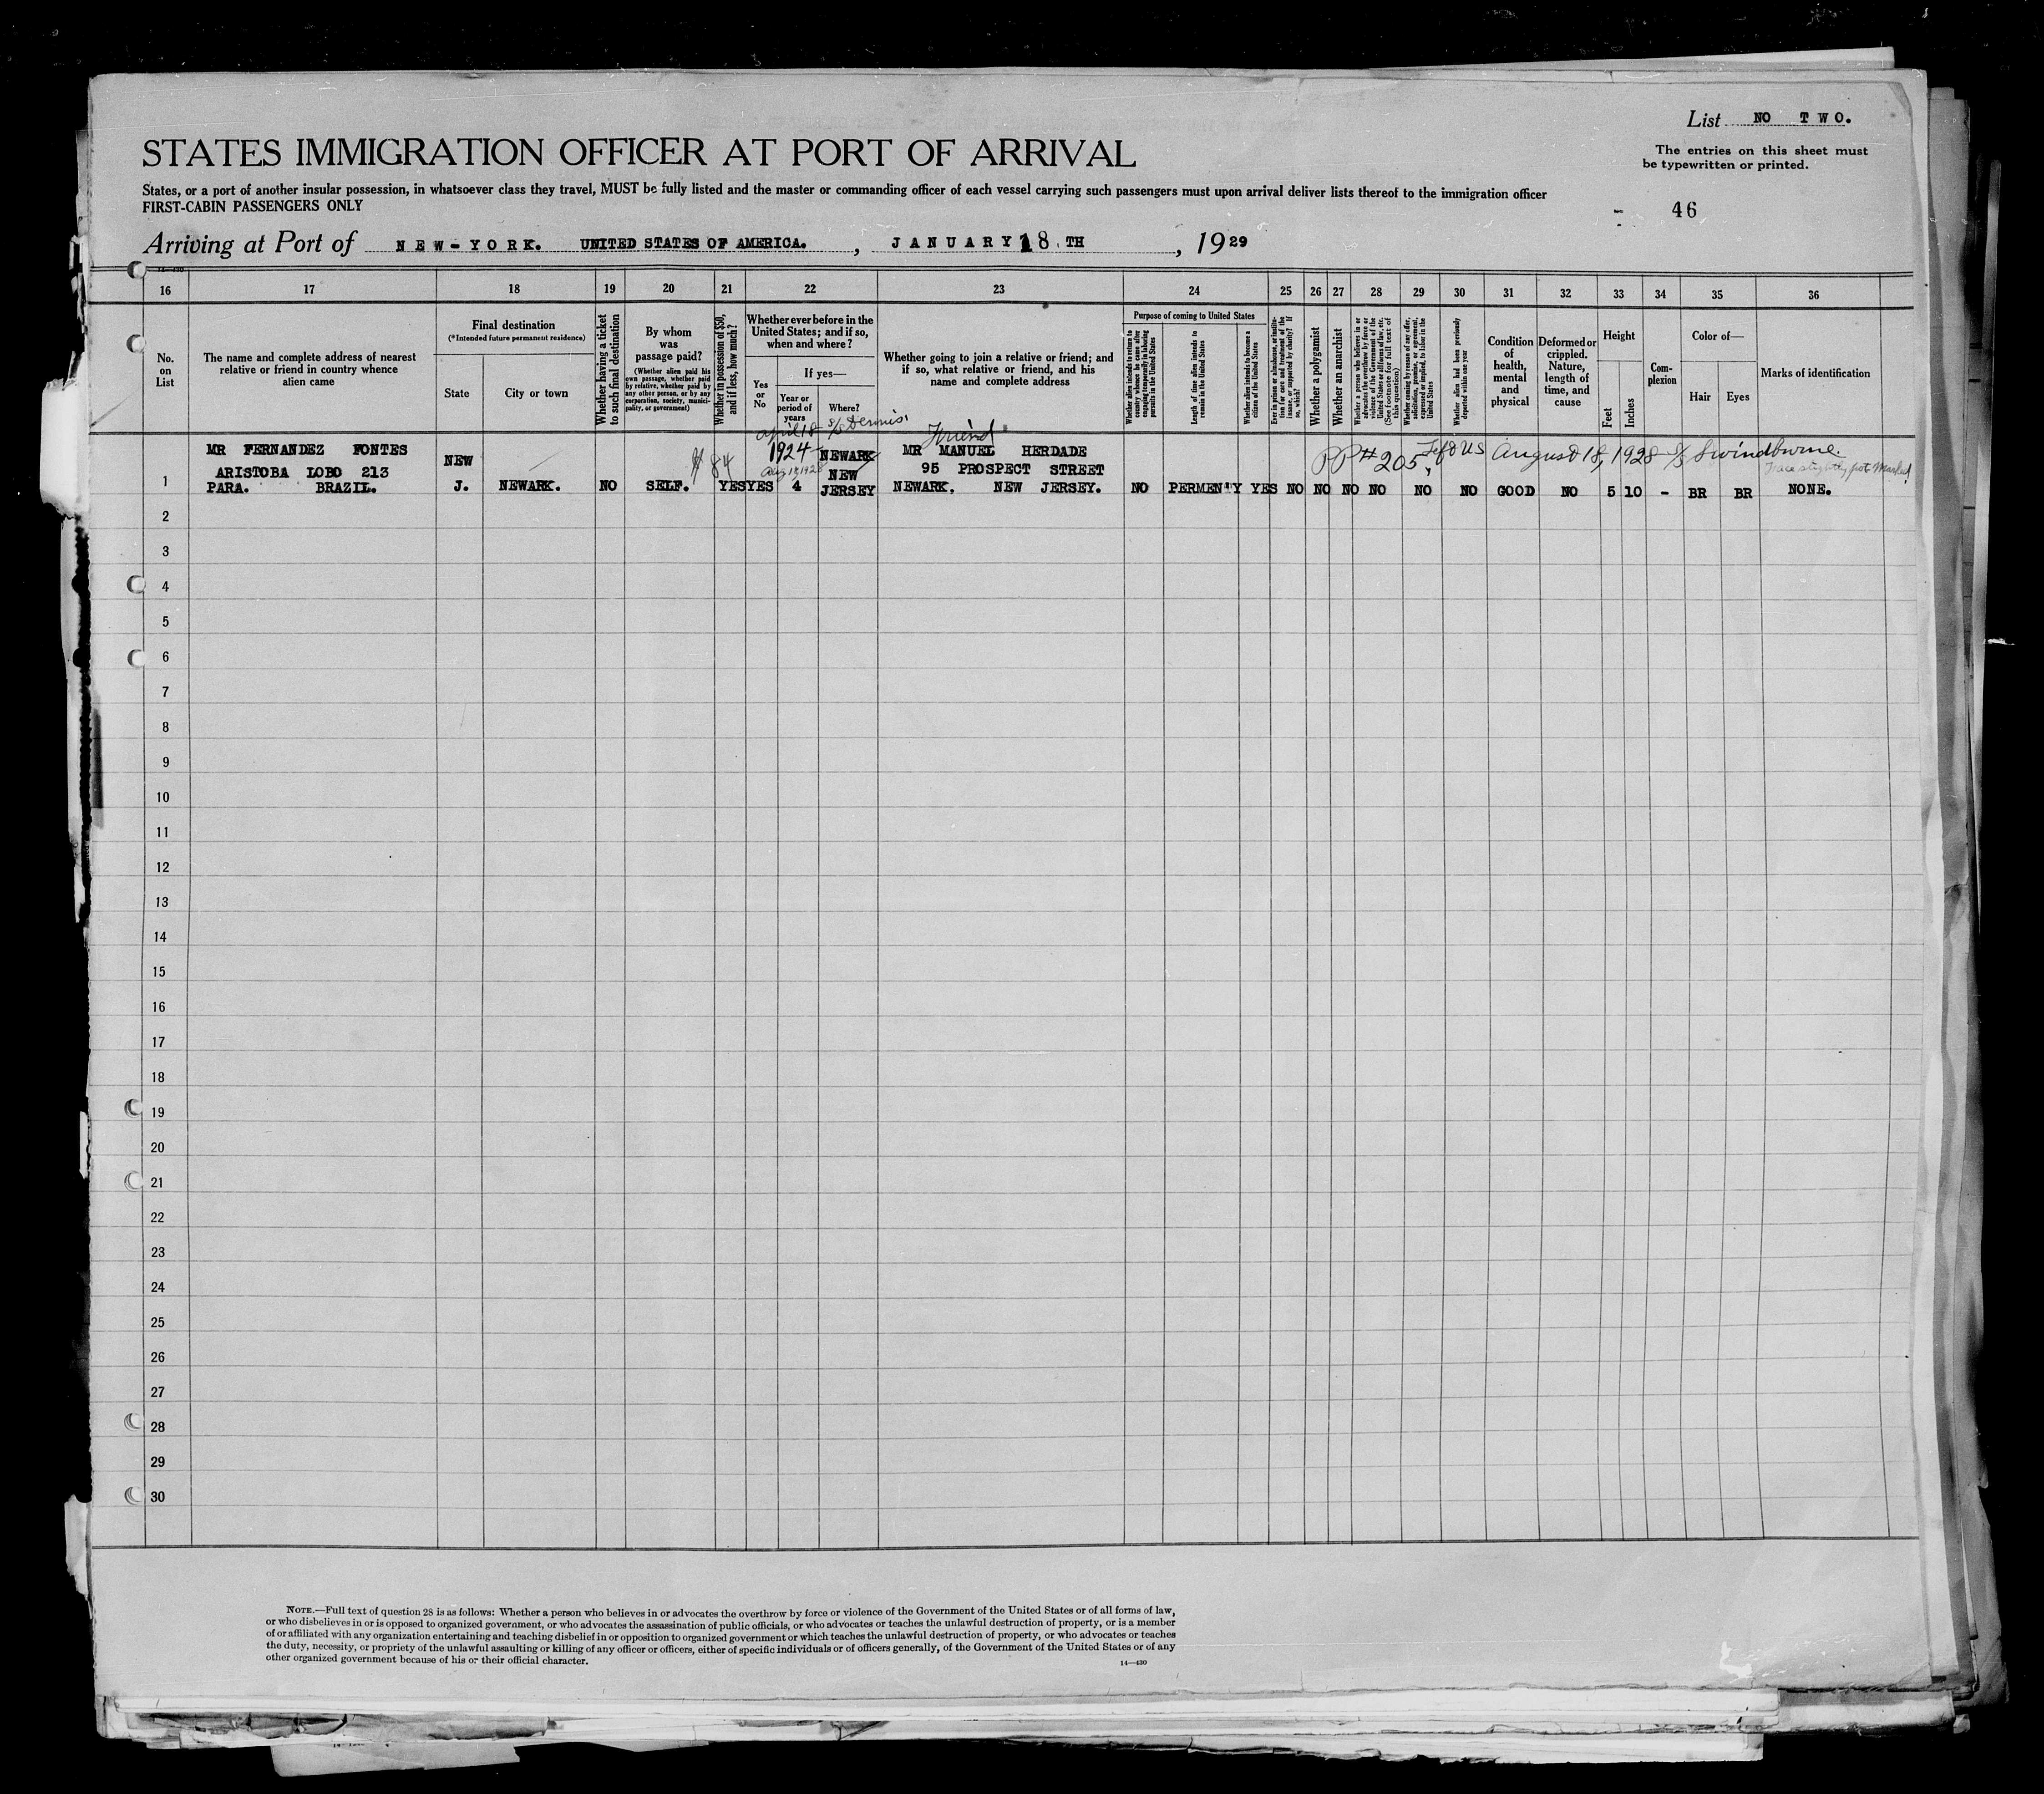 List NO TWO.
The entries on this sheet must
be typewritten or printed.
STATES IMMIGRATION OFFICER AT PORT OF ARRIVAL
States, or a port of another insular possession, in whatsoever class they travel, MUST be fully listed and the master or commanding officer of each vessel carrying such passengers must upon arrival deliver lists thereof to the immigration officer
FIRST-CABIN PASSENGERS ONLY
- 46
Arriving at Port of NEW-YORK. UNITED STATES OF AMERICA. , JANUARY 18.TH , 1929
14—430
16 17 18 19 20 21 22 23 24 25 26 27 28 29 30 31 32 33 34 35 36
No.
on
List
The name and complete address of nearest
relative or friend in country whence
alien came
Final destination
(*Intended future permanent residence)
State
City or town
Whether having a ticket
to such final destination
By whom
was
passage paid?
(Whether alien paid his
own passage, whether paid
by relative, whether paid by
any other person, or by any
corporation, society, munici-
pality, or government)
Whether in possession of $50,
and if less, how much?
Whether ever before in the
United States; and if so,
when and where?
Yes
or
No
If yes—
Year or
period of
years
Where?
Whether going to join a relative or friend; and
if so, what relative or friend, and his
name and complete address
Purpose of coming to United States
Whether alien intends to return to
country whence he came after
engaging temporarily in laboring
pursuits in the United States
Length of time alien intends to
remain in the United States
Whether alien intends to become a
citizen of the United States
Ever in prison or almshouse, or institu-
tion for care and treatment of the
insane, or supported by charity? If
so, which?
Whether a polygamist
Whether an anarchist
Whether a person who believes in or
advocates the overthrow by force or
violence of the Government of the
United States or all forms of law, etc.
(See footnote for full text of
this question)
Whether coming by reason of any offer,
solicitation, promise, or agreement,
expressed or implied, to labor in the
United States
Whether alien had been previously
deported within one year
Condition
of
health,
mental
and
physical
Deformed or
crippled.
Nature,
length of
time, and
cause
Height
Feet
Inches
Com-
plexion
Color of—
Hair
Eyes
Marks of identification
april 18 s/s Dennis.
Friend
MR FERNANDEZ FONTES
ARISTOBA LOBO 213
PARA. BRAZIL.
NEW
J.
NEWARK.
NO
SELF.
$84
YES
YES
1924
Aug 18, 1928
4
NEWARK
NEW
JERSEY
MR MANUEL HERDADE
95 PROSPECT STREET
NEWARK. NEW JERSEY.
PP# 205, Left US August 18, 1928 s/s Swindburne.
Face slightly pot Marked
NO PERMEN'Y YES NO NO NO NO NO NO GOOD NO 5 10 - BR BR NONE.
1
2
3
4
5
6
7
8
9
10
11
12
13
14
15
16
17
18
19
20
21
22
23
24
25
26
27
28
29
30
NOTE.—Full text of question 28 is as follows: Whether a person who believes in or advocates the overthrow by force or violence of the Government of the United States or of all forms of law,
or who disbelieves in or is opposed to organized government, or who advocates the assassination of public officials, or who advocates or teaches the unlawful destruction of property, or is a member
of or affiliated with any organization entertaining and teaching disbelief in or opposition to organized government or which teaches the unlawful destruction of property, or who advocates or teaches
the duty, necessity, or propriety of the unlawful assaulting or killing of any officer or officers, either of specific individuals or of officers generally, of the Government of the United States or of any
other organized government because of his or their official character.
14—430